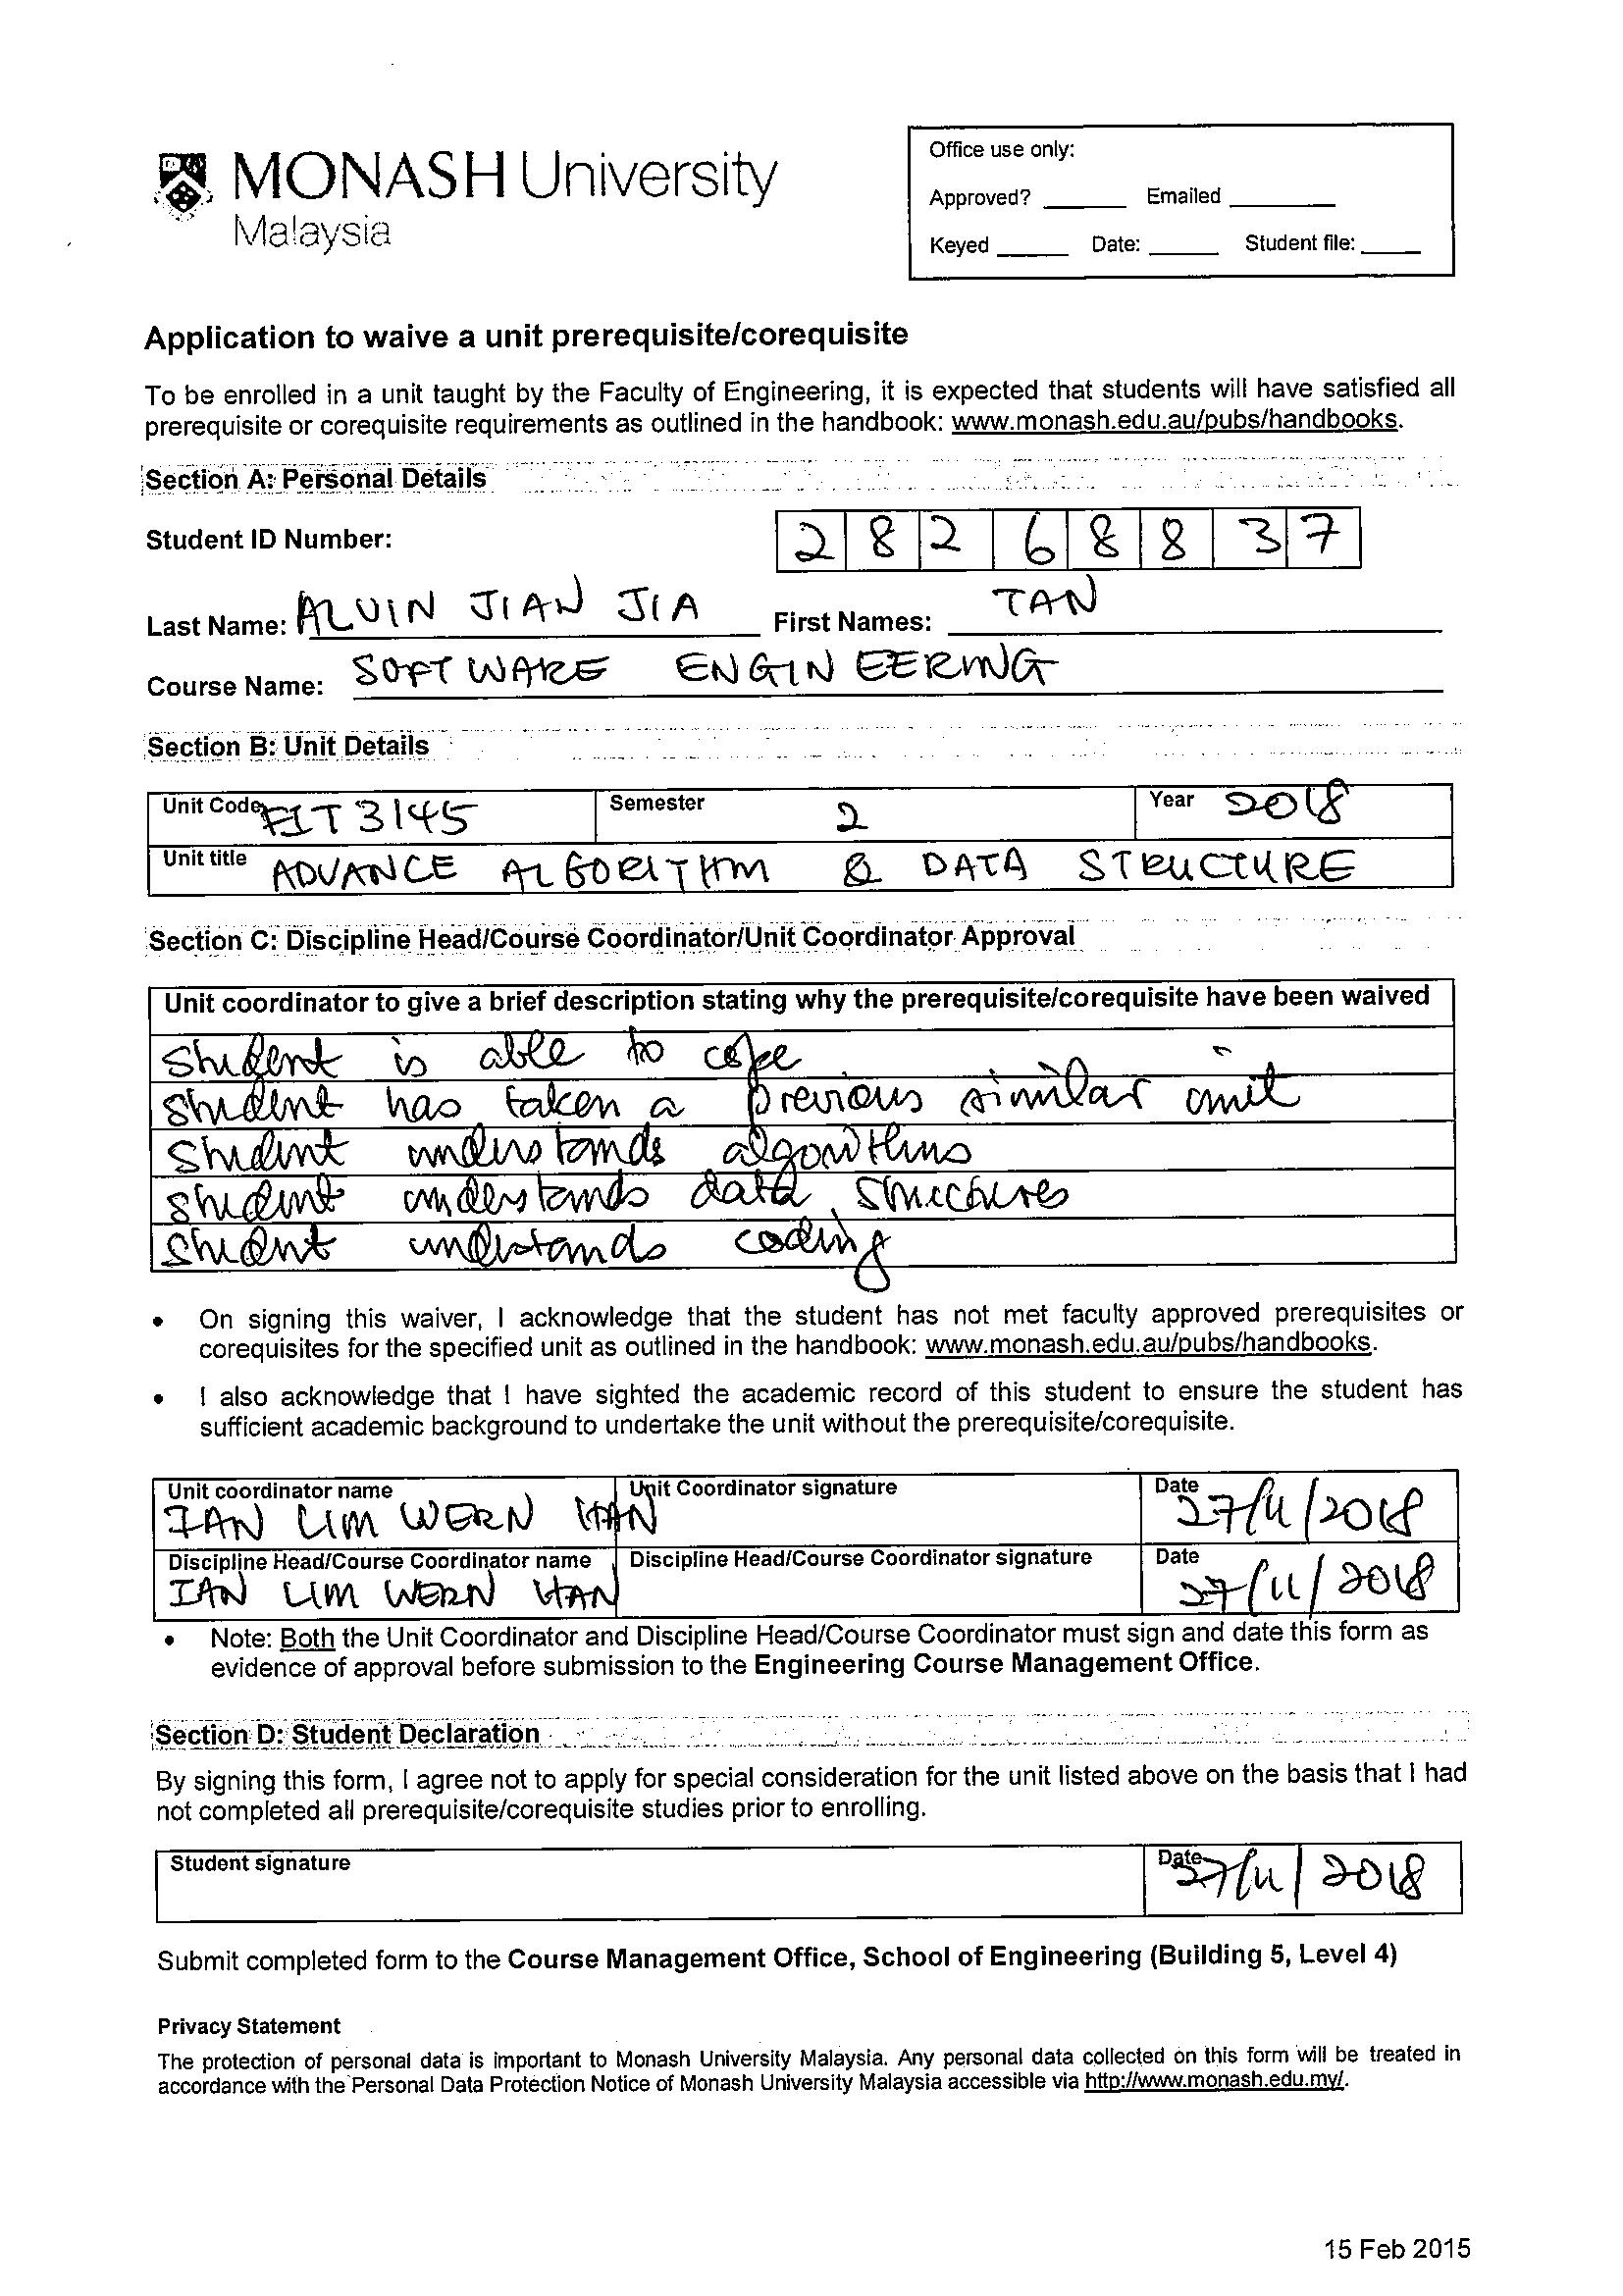 MONASH University
Malaysia
Office use only:
Approved? ______ Emailed ________
Keyed _______ Date: _____ Student file: ____
Application to waive a unit prerequisite/corequisite
To be enrolled in a unit taught by the Faculty of Engineering, it is expected that students will have satisfied all
prerequisite or corequisite requirements as outlined in the handbook: www.monash.edu.au/pubs/handbooks.
Section A: Personal Details
Student ID Number: 2 8 2 6 8 8 3 7
Last Name: ALVIN JIAN JIA First Names: TAN
Course Name: SOFTWARE ENGINEERING
Section B: Unit Details
Unit Code FIT3145 Semester 2 Year 2018
Unit title ADVANCE ALGORITHM & DATA STRUCTURE
Section C: Discipline Head/Course Coordinator/Unit Coordinator Approval
Unit coordinator to give a brief description stating why the prerequisite/corequisite have been waived
student is able to cope
student has taken a previous similar unit
student understands algorithms
student understands data structures
student understands coding
• On signing this waiver, I acknowledge that the student has not met faculty approved prerequisites or
corequisites for the specified unit as outlined in the handbook: www.monash.edu.au/pubs/handbooks.
• I also acknowledge that I have sighted the academic record of this student to ensure the student has
sufficient academic background to undertake the unit without the prerequisite/corequisite.
Unit coordinator name Unit Coordinator signature Date
IAN LIM WERN HAN 27/11/2018
Discipline Head/Course Coordinator name Discipline Head/Course Coordinator signature Date
IAN LIM WERN HAN 27/11/2018
• Note: Both the Unit Coordinator and Discipline Head/Course Coordinator must sign and date this form as
evidence of approval before submission to the Engineering Course Management Office.
Section D: Student Declaration
By signing this form, I agree not to apply for special consideration for the unit listed above on the basis that I had
not completed all prerequisite/corequisite studies prior to enrolling.
Student signature Date 27/11/2018
Submit completed form to the Course Management Office, School of Engineering (Building 5, Level 4)
Privacy Statement
The protection of personal data is important to Monash University Malaysia. Any personal data collected on this form will be treated in
accordance with the Personal Data Protection Notice of Monash University Malaysia accessible via http://www.monash.edu.my/.
15 Feb 2015